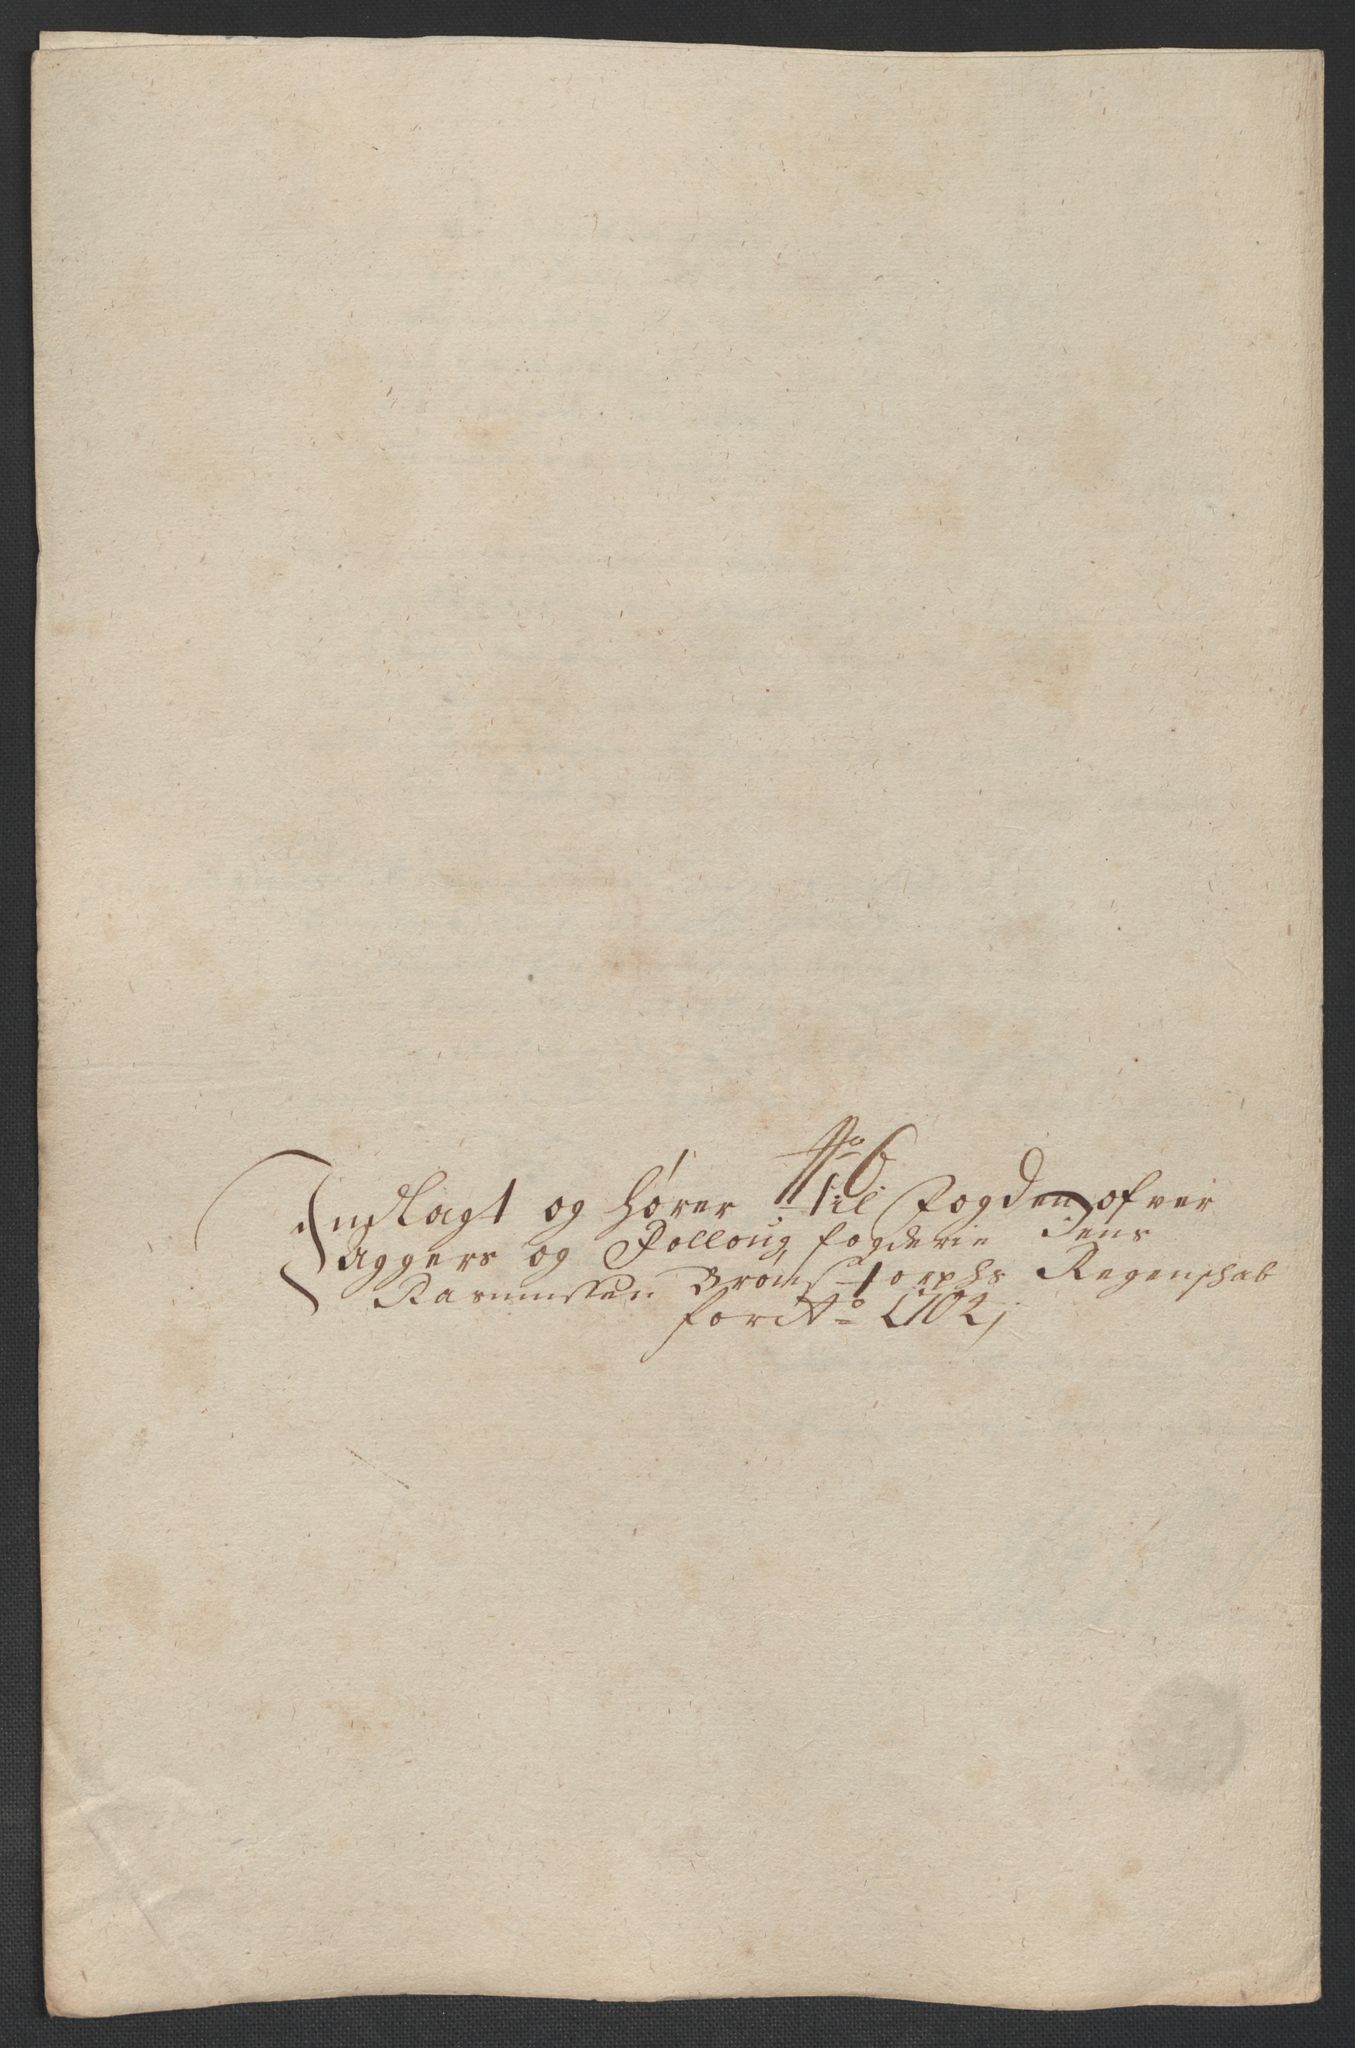 No 6
Indlagt og hører til Fogden ofver
Aggers og Folloug fogderie Jens
Rasmussen Brømstorphs Regenschab
for Ao 1702,